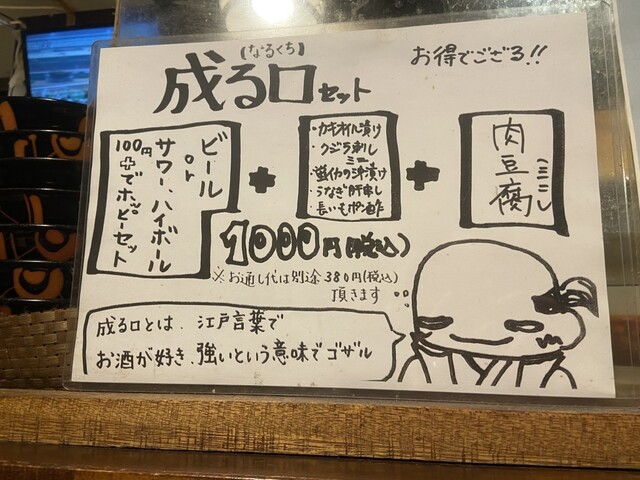 (なるくち)
成る口セット
お得でござる!!
ビール
or
サワー、ハイボール
100円+でホッピーセット
+
・カキオイル漬け
・クジラ刺し
ミニ
・蛍イカの沖漬け
・うなぎ肝串し
・長いもポン酢
+
肉豆腐(ミニ)
1000円(税込)
※お通し代は別途380円(税込)
頂きます
成る口とは、江戸言葉で
お酒が好き、強いという意味でゴザル